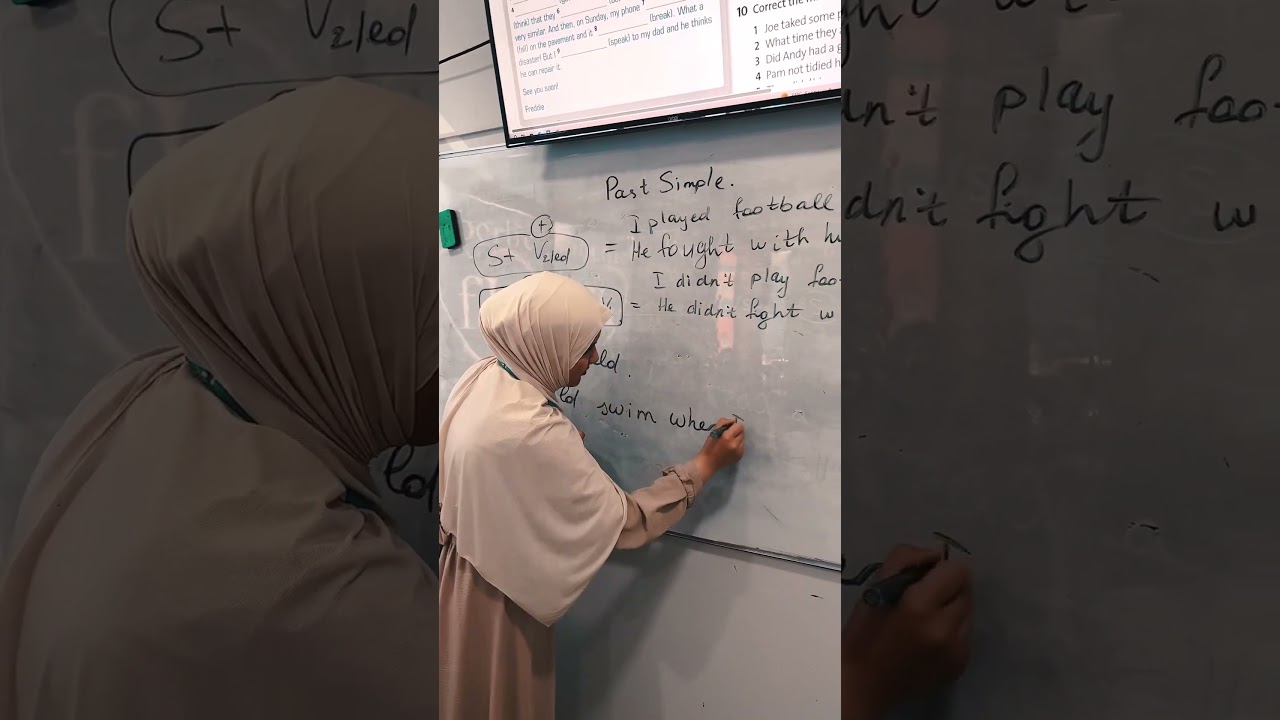 (think) that they 6
very similar. And then, on Sunday, my phone 7
(fall) on the pavement and it 8 ________ (break). What a
disaster! But I 9 ________ (speak) to my dad and he thinks
he can repair it.
See you soon!
Freddie
10 Correct the
1 Joe taked some
2 What time they
3 Did Andy had a
4 Pam not tidied
Past Simple.
(+)
S+ V2/ed = I played football
He fought with
I didn't play foo
V1 = He didn't fight w
ld.
ld swim when I